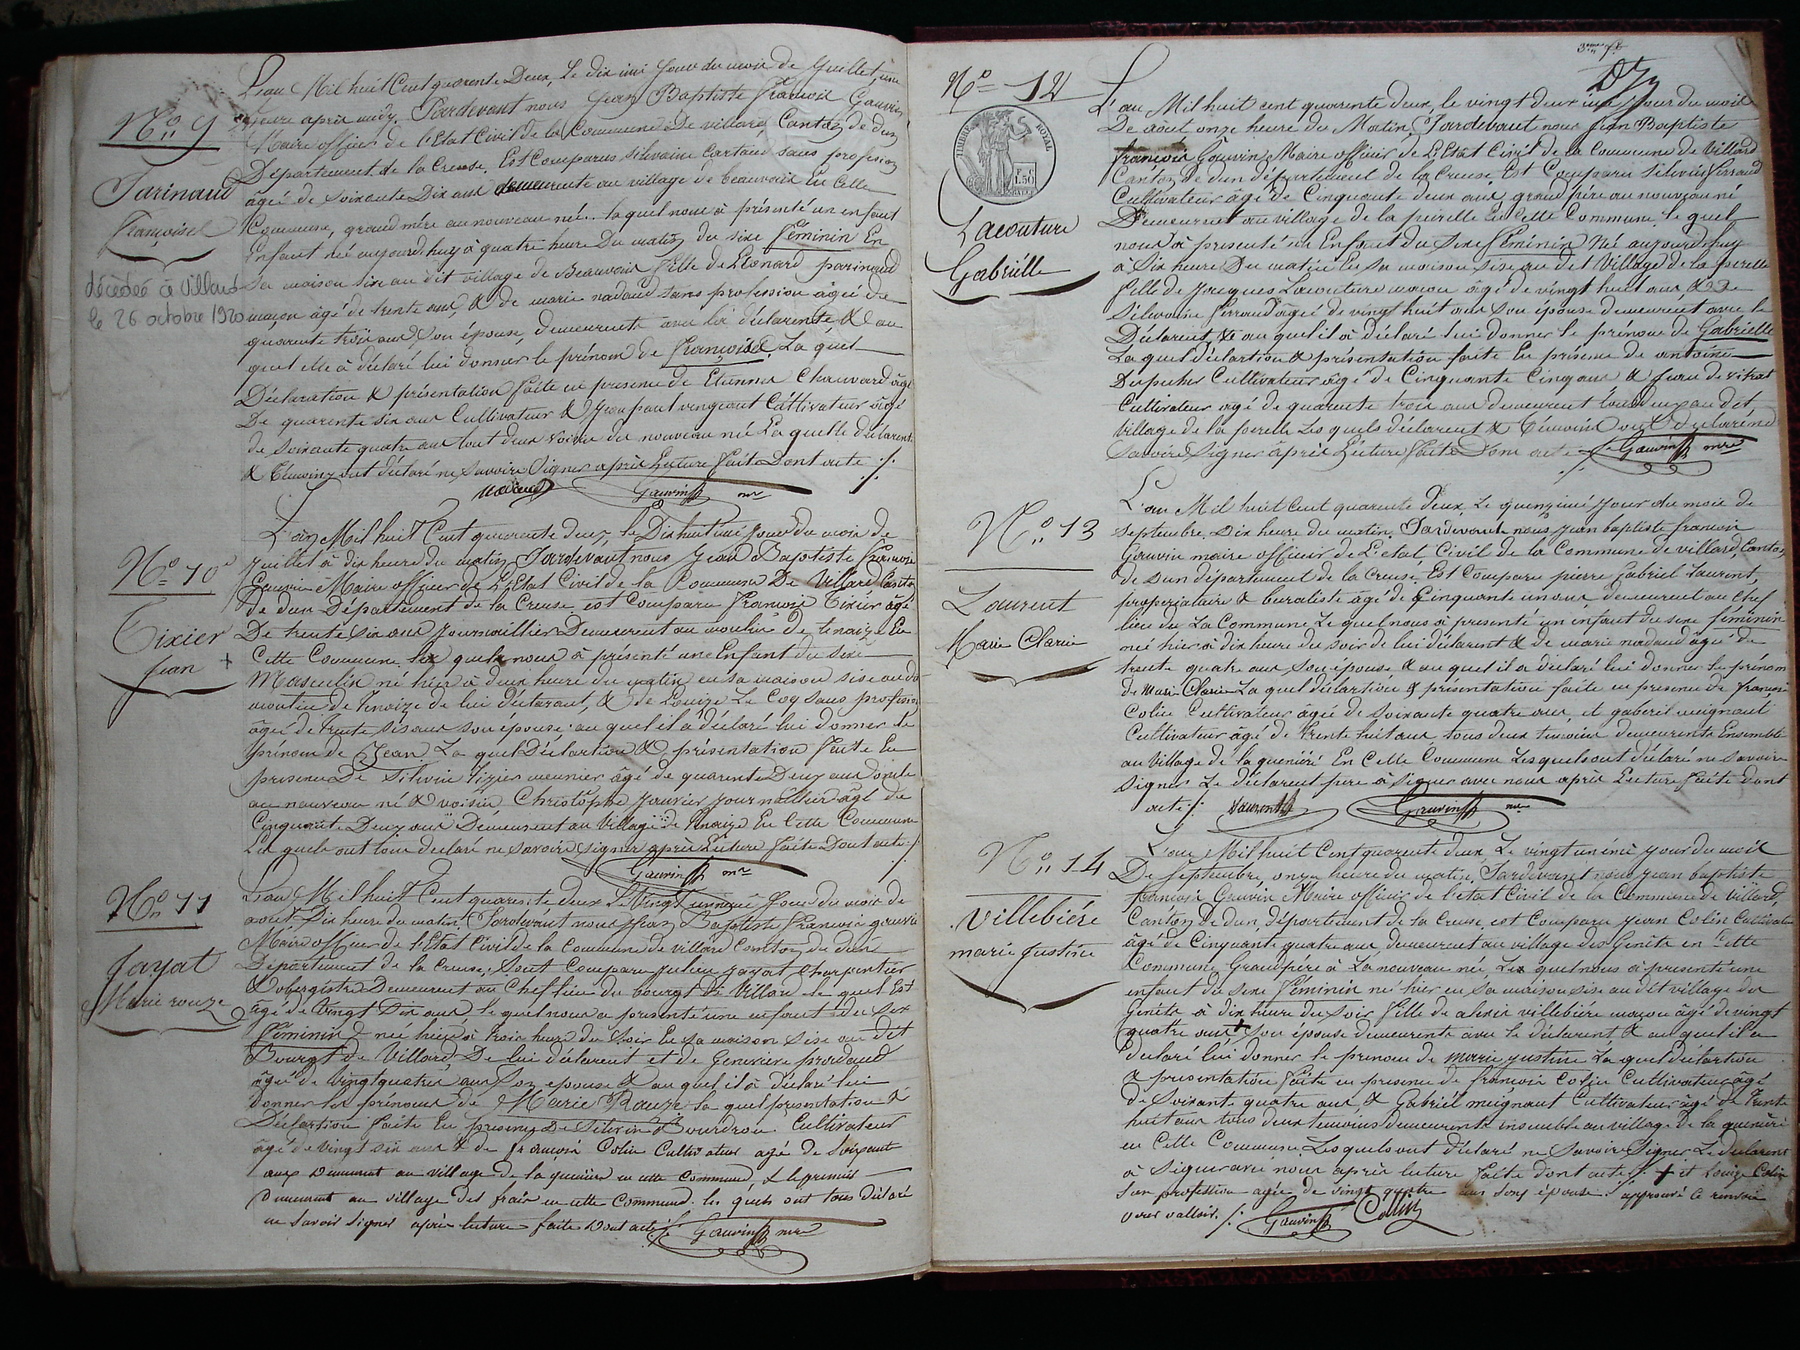 N° 9
Parinaud
Françoise
décédée à Villard
le 26 octobre 1920
L'an Mil huit Cent quarente Deux, Le dix Jour du mois de Juillet, une
heure après midy, Pardevant nous Jean Baptiste François Gauvin
Maire officier de l'Etat Civil de la Commune De Villard, Canton de dun
Département de la Creuse, Est Comparus Silvaine Cartaud sans profession
âgée de soixante Dix ans demeurente au village de Beauvais En Cette
Commune, grand mère au nouveau né. la quel nous à présenté un enfant
Enfant né aujourd'huy à quatre heure Du matin du sexe Féminin En
sa maison sise au dit village de Beauvais fille de Léonard parinaud
maçon âgé de trente ans, & de marie nadaud sans profession âgée de
quarente trois ans Son épouse, demeurente avec la déclarente, & au
quel elle à déclaré lui donner le prénom de Françoise, La quel
Déclaration & présentation faite en presence de Etienne Chauvard âgé
De quarente six ans Cultivateur & Jean paul vengeant Cultivateur âgé
de soixante quatre ans tout deux voisin du nouveau né La quelle declarente
& Temoins ont déclaré ne Savoire Signer après Lecture faite Dont acte ./.
Gauvin mre
N° 10
Tixier
Jean +
L'an Mil huit Cent quarente deux, le Dix huit Jour du mois de
Juillet à dix heure du matin, Pardevant nous Jean Baptiste François
Gauvin Maire officier de L'Etat Civil de la Commune De Villard Canton
de dun Département de la Creuse, est Comparu François Tixier âgé
De trente six ans Journaillier Demeurent au moulin de tenaize En
Cette Commune, Le quel nous à présenté une Enfant du sexe
Masculin né hier à deux heure du matin en sa maison sise au dit
moulin de tenaize de lui déclarant, & de Louize Le Coq sans profession
âgée de trente six ans son épouse, au quel il à déclaré lui donner le
prénom de Jean, La quel Déclartion & présentation faite En
presence De Silvin Tixier meunier âgé de quarente Deux ans oncle
au nouveau né & voisin Christophe Janvier Journaillier âgé de
Cinquante Deux ans Demeurent au Village de tenaize En Cette Commune
Les quels ont tous déclaré ne Savoire Signer après Lecture faite Dont acte ./.
Gauvin mre
N° 11
Jayat
Marie rouze
L'an Mil huit Cent quarente deux Le Vingt unième Jour du mois de
aout, Dix heure du matin, Pardevant nous Jean Baptiste François gauvin
Maire officier de l'Etat Civil de la Commune de villard Canton de dun
Département de la Creuse, Sont Comparu Julien Jayat Charpentier
& obergiste Demeurent au Chef lieu du bourgt de Villard le quel Est
âgé de Vingt Dix ans, le quel nous a présenté une enfant du Sexe
Féminin née hier à trois heure du Soir En sa maison Sise au dit
Bourgt de Villard, De lui déclarent et de Genevieve
âgée de Vingt quatre ans Son epouse & au quel il à déclaré lui
donner les prénoms de Marie Rouze la quel presentation &
Déclartion faite En presence De Silvin Bourdeou Cultivateur
âgé de vingt six ans & de françois Colin Cultivateur agé de soixante
ans Demeurent au village de la quenière en cette Commune, & le premier
Demeurent au village des frais en cette Commune, les quels ont tous déclaré
ne Savoir Signer après lecture faite Dont acte ./. Gauvin mre
3eme ft
N° 12
TIMBRE ROYAL
1.50
Lacouture
Gabriélle
L'an Mil huit cent quarente deux, le vingt deux Jour du mois
De août onze heure du Matin, Pardevant nous Jean Baptiste
François Gauvin Maire officier de L'Etat Civil de la Commune de Villard
Canton de dun département de la Creuse, Est Comparu Silvin Perraud
Cultivateur âgé de Cinquante deux ans, grand père au nouveau né
Demeurent au village de la perelle En Cette Commune, Le quel
nous à presenté un Enfant du Sexe Féminin Né aujourdhuy
à Six heure Du matin En sa maison Sise au dit Village de la perelle
fille de Jacques Lacouture maçon âgé de vingt huit ans & De
Silvaine Perraud âgée de vingt huit ans Son épouse demeurent avec le
Déclarent, & au quel il à déclaré lui donner le prénom de Gabriélle
La quel déclartion & présentation faite En présence de antoine
Dupuches Cultivateur âgé de Cinquante Cinq ans & Jean de vitrat
Cultivateur agé de quarente trois ans demeurent tous deux au dit
village de la perelle Les quels déclarent & Temoins ont déclaré ne
Savoire Signer après Lecture faite Dont acte ./. Gauvin mre
N° 13
Laurent
Marie Clarie
L'an Mil huit Cent quarente deux, Le quinzième Jour du mois de
Septembre, Dix heure du matin, Pardevant nous Jean baptiste françois
Gauvin maire officier de L'etat Civil de la Commune de villard, Canton
de Dun département de la Creuse, Est Comparu pierre Gabriel Laurent,
properiataire & buraliste âgé de Cinquante un ans, demeurent au Chef
lieu de La Commune, Le quel nous à présenté un enfant du sexe féminin
né hier à dix heure du soir de lui déclarent & de marie nadaud âgée de
trente quatre ans Son épouse, & au quel il à déclaré lui donner le prénom
de Marie Clarie La quel déclartion & présentation faite en presence de françois
Colin Cultivateur âgé de soixante quatre ans, et gaberiel meignaut
Cultivateur âgé de trente huit ans tous deux temoins demeurents Ensemble
au village de la quenière En Cette Commune Les quels ont déclaré ne savoire
signer Le déclarent père à Signer avec nous après Lecture faite dont
acte ./. Laurent Gauvin mre
N° 14
Villebiére
marie Justine
L'an Mil huit Cent quarente deux Le vingt unième Jour du mois
De Septembre, onze heure du matin, Pardevant nous Jean baptiste
françois Gauvin Maire officier de l'état Civil de la Commune de Villard,
Canton de dun, département de la Creuse, est Comparu Jean Colin Cultivateur
âgé de Cinquante quatre ans demeurent au village des Genêts en Cette
Commune, Grandpére à La nouveau né, Le quel nous à présenté une
enfant du sexe Féminin né hier en sa maison sise au dit village des
Genêts à dix heure du Soir fille de alexis villebiere maçon âgé de vingt
quatre ans + Son épouse demeurente avec le déclarent & au quel il a
déclaré lui donner le prenom de Marie Justine La quel déclartion
& presentation faite en presence de françois Colin Cultivateur âgé
de Soixante quatre ans & Gabriél meignaut Cultivateur âgé de trente
huit ans tous deux temoins demeurents ensemble au village de la quenière
en Cette Commune, Les quels ont déclaré ne Savoire Signer Le déclarent
à Signer avec nous après lecture faite dont acte ./. + et Louize Colin
San profession agée de vingt quatre ans Sons épouse. approuvé le renvoie
./. Gauvin Collin